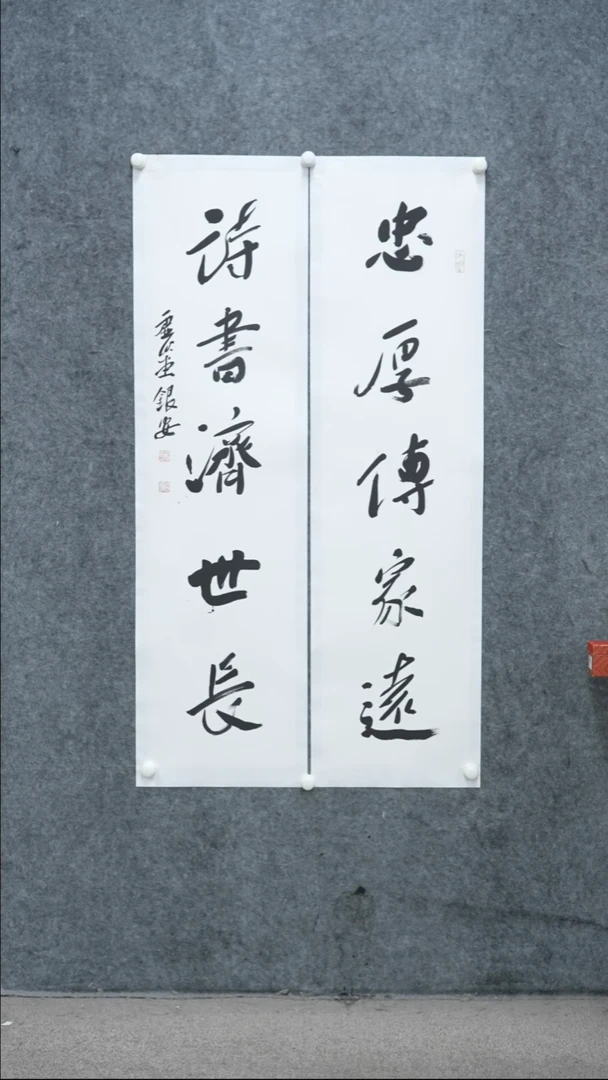 忠厚傳家遠
詩書濟世長
銀安